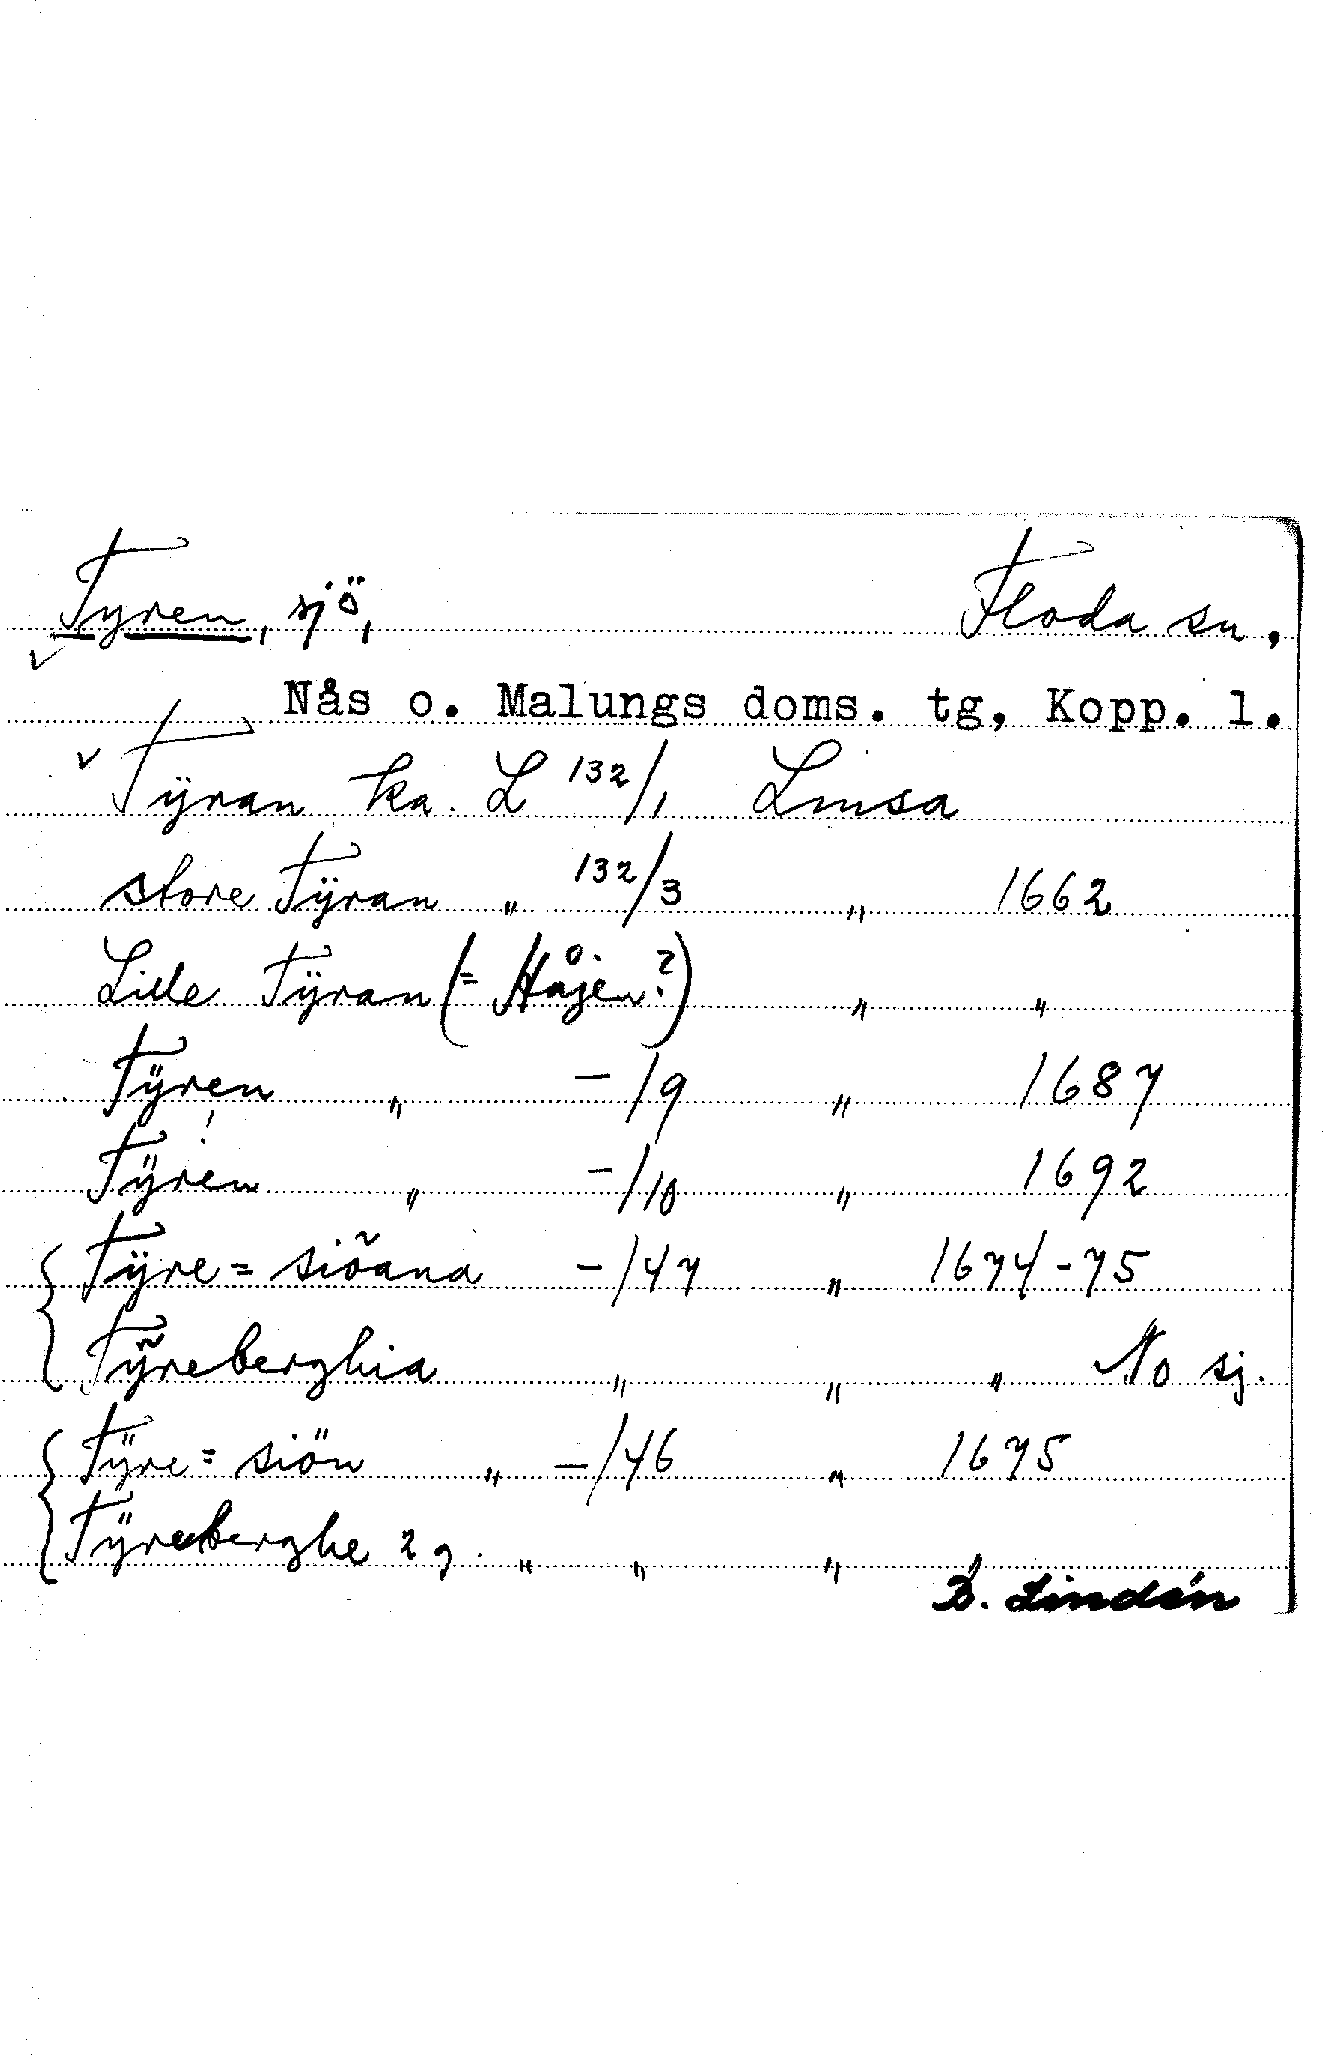 Tyren, sjö, Floda sn,
Nås o. Malungs doms. tg, Kopp. l.
Tÿran ka. L 132/1 Lmsa
store Tÿran " 132/3 " 1662
Lille Tÿran (= Håjen?) " "
Tÿren " -/9 " 1687
Tÿren! " -/10 " 1692
Tÿre=siõana -/47 " 1674-75
Tÿreberghia " " " No sj.
Tÿre=siön " -/46 " 1675
Tÿreberghe 2 g. " " " "
B. Lindén